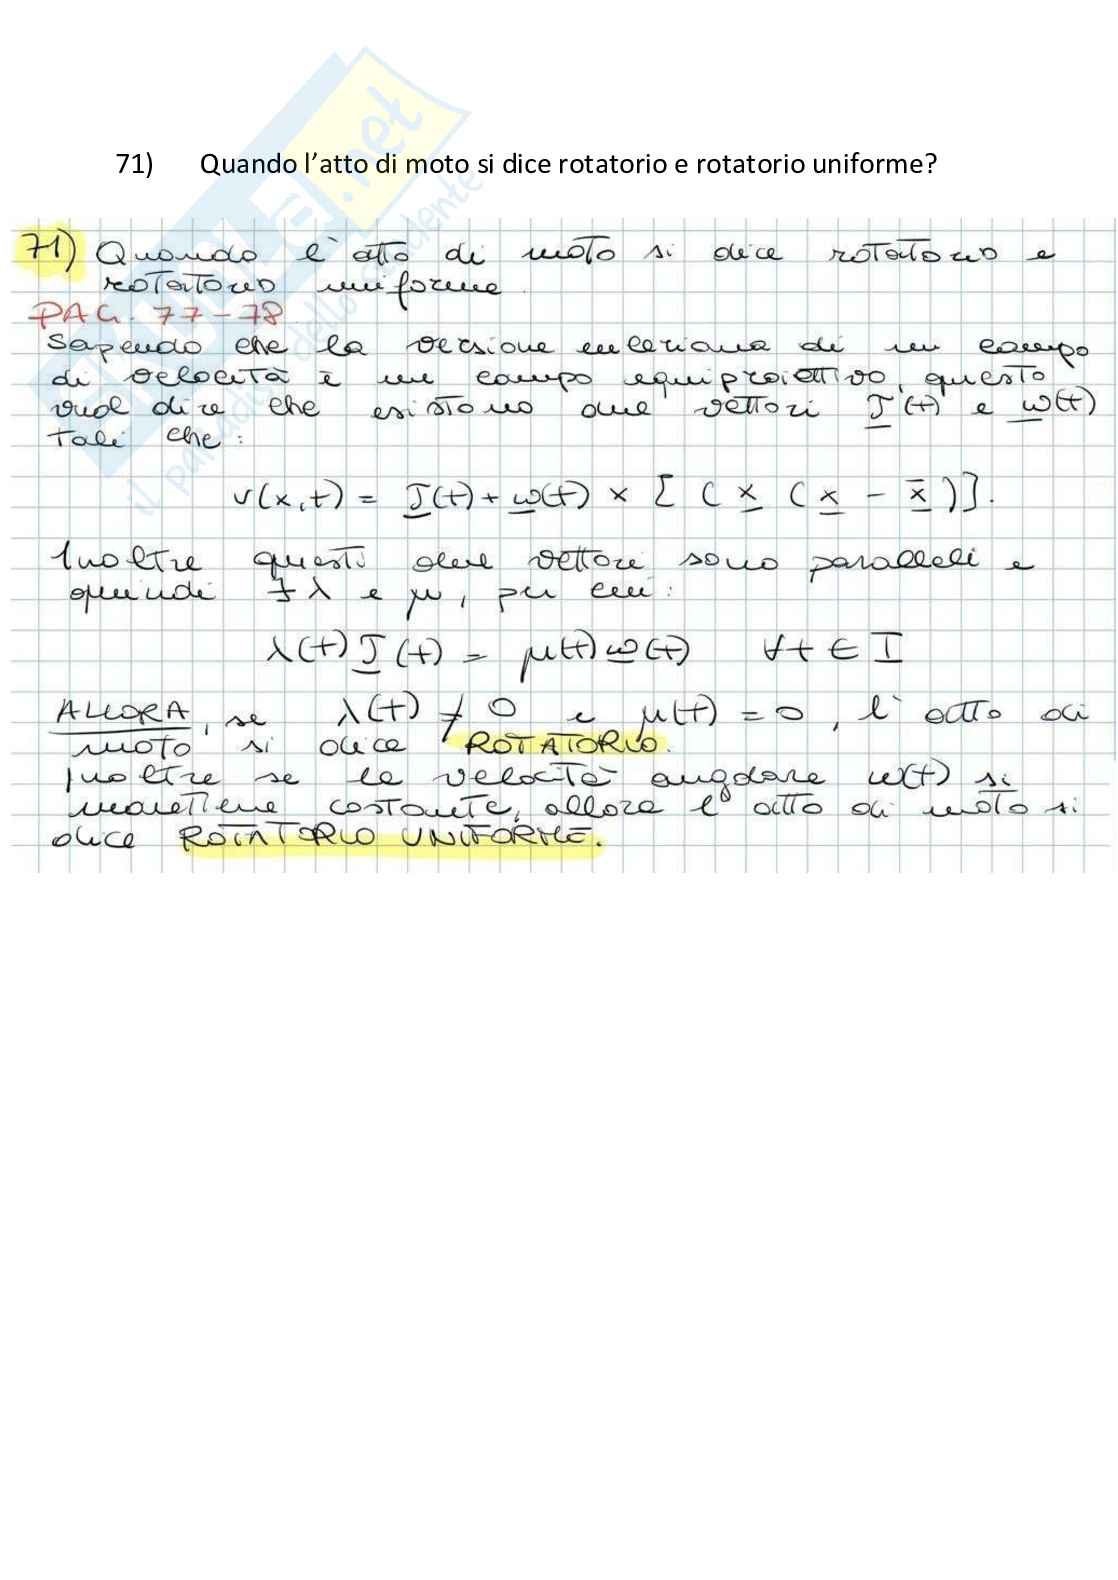 71) Quando l’atto di moto si dice rotatorio e rotatorio uniforme?
71) Quando l'atto di moto si dice rotatorio e
rotatorio uniforme.
PAG. 77-78
Sapendo che la versione euleriana di un campo
di velocità è un campo equiproiettivo, questo
vuol dire che esistono due vettori J(t) e ω(t)
tali che:
v(x,t) = J(t) + ω(t) × [ ( x ( x - x̄ )].
Inoltre questi due vettori sono paralleli e
quindi ∃ λ e μ, per cui:
λ(t) J(t) = μ(t) ω(t) ∀t ∈ I
ALLORA, se λ(t) ≠ 0 e μ(t) = 0, l'atto di
moto si dice ROTATORIO.
Inoltre se la velocità angolare ω(t) si
mantiene costante, allora l'atto di moto si
dice ROTATORIO UNIFORME.
.net
il paradiso dello studente